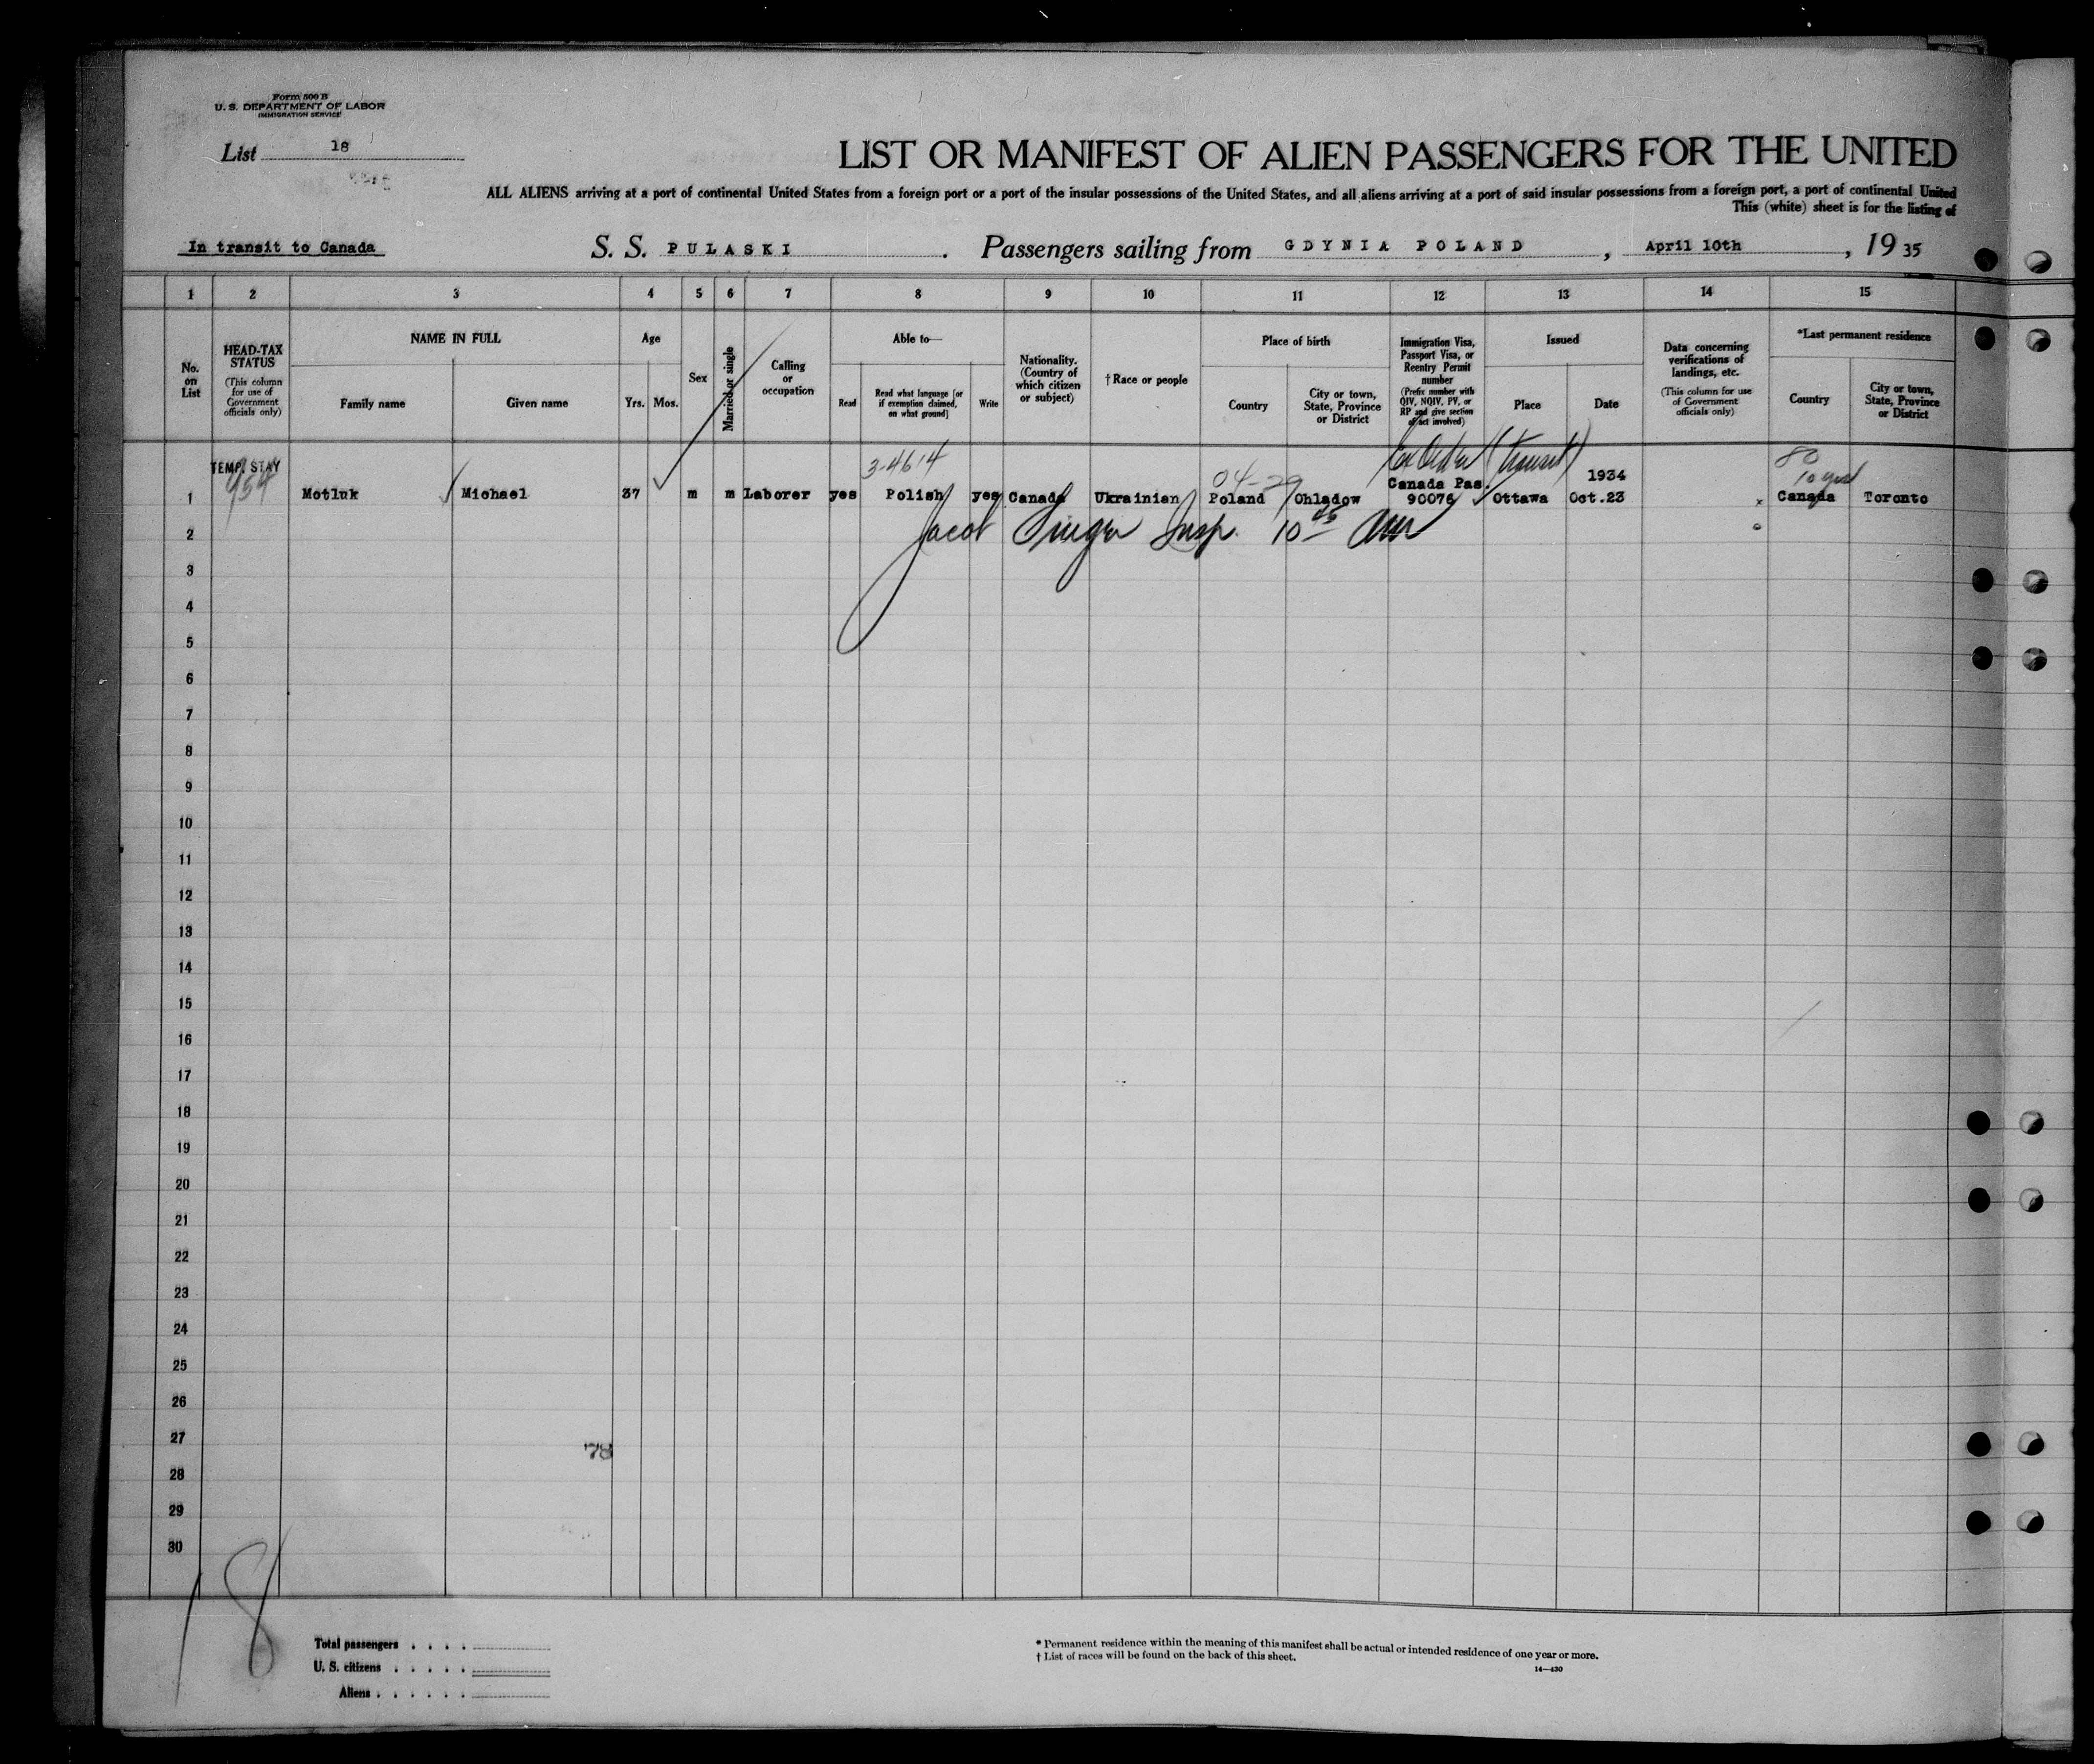 Form 500 B
U. S. DEPARTMENT OF LABOR
IMMIGRATION SERVICE
List 18
LIST OR MANIFEST OF ALIEN PASSENGERS FOR THE UNITED
ALL ALIENS arriving at a port of continental United States from a foreign port or a port of the insular possessions of the United States, and all aliens arriving at a port of said insular possessions from a foreign port, a port of continental United
This (white) sheet is for the listing of
In transit to Canada S. S. PULASKI . Passengers sailing from GDYNIA POLAND , April 10th , 19 35
1 2 3 4 5 6 7 8 9 10 11 12 13 14 15
No. on List
HEAD-TAX STATUS
(This column for use of Government officials only)
NAME IN FULL
Family name Given name
Age
Yrs. Mos.
Sex
Married or single
Calling or occupation
Able to—
Read Read what language [or if exemption claimed, on what ground] Write
Nationality. (Country of which citizen or subject)
† Race or people
Place of birth
Country City or town, State, Province or District
Immigration Visa, Passport Visa, or Reentry Permit number
(Prefix number with QIV, NQIV, PV, or RP and give section of act involved)
Issued
Place Date
Data concerning verifications of landings, etc.
(This column for use of Government officials only)
*Last permanent residence
Country City or town, State, Province or District
TEMP. STAY 3-4614 04-29 (transit) 80
454 Canada Pas. 1934 10 yrs
1 Motluk Michael 37 m m Laborer yes Polish yes Canada Ukrainian Poland Ohladow 90076 Ottawa Oct.23 x Canada Toronto
2 Jacob Singer Insp. 10 45 AM
3
4
5
6
7
8
9
10
11
12
13
14
15
16
17
18
19
20
21
22
23
24
25
26
27
78
28
29
30
18
Total passengers . . . .
U. S. citizens . . . . .
Aliens . . . . . .
* Permanent residence within the meaning of this manifest shall be actual or intended residence of one year or more.
† List of races will be found on the back of this sheet.
14—430